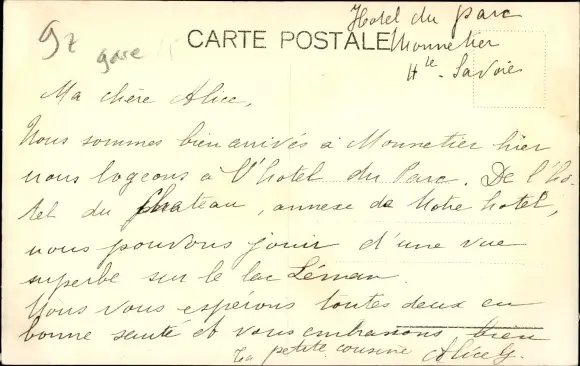 Hotel du parc
Monnetier
Hte - Savoie
gare
CARTE POSTALE
Ma chère Alice,
Nous sommes bien arrivés à Monnetier hier
nous logeons à l'hotel du Parc. De l'ho-
tel du chateau, annexe de Notre hotel,
nous pouvons jouir d'une vue
superbe sur le lac Léman
Nous vous espérons toutes deux en
bonne santé et vous embrassons bien
Ta petite cousine Alice G.